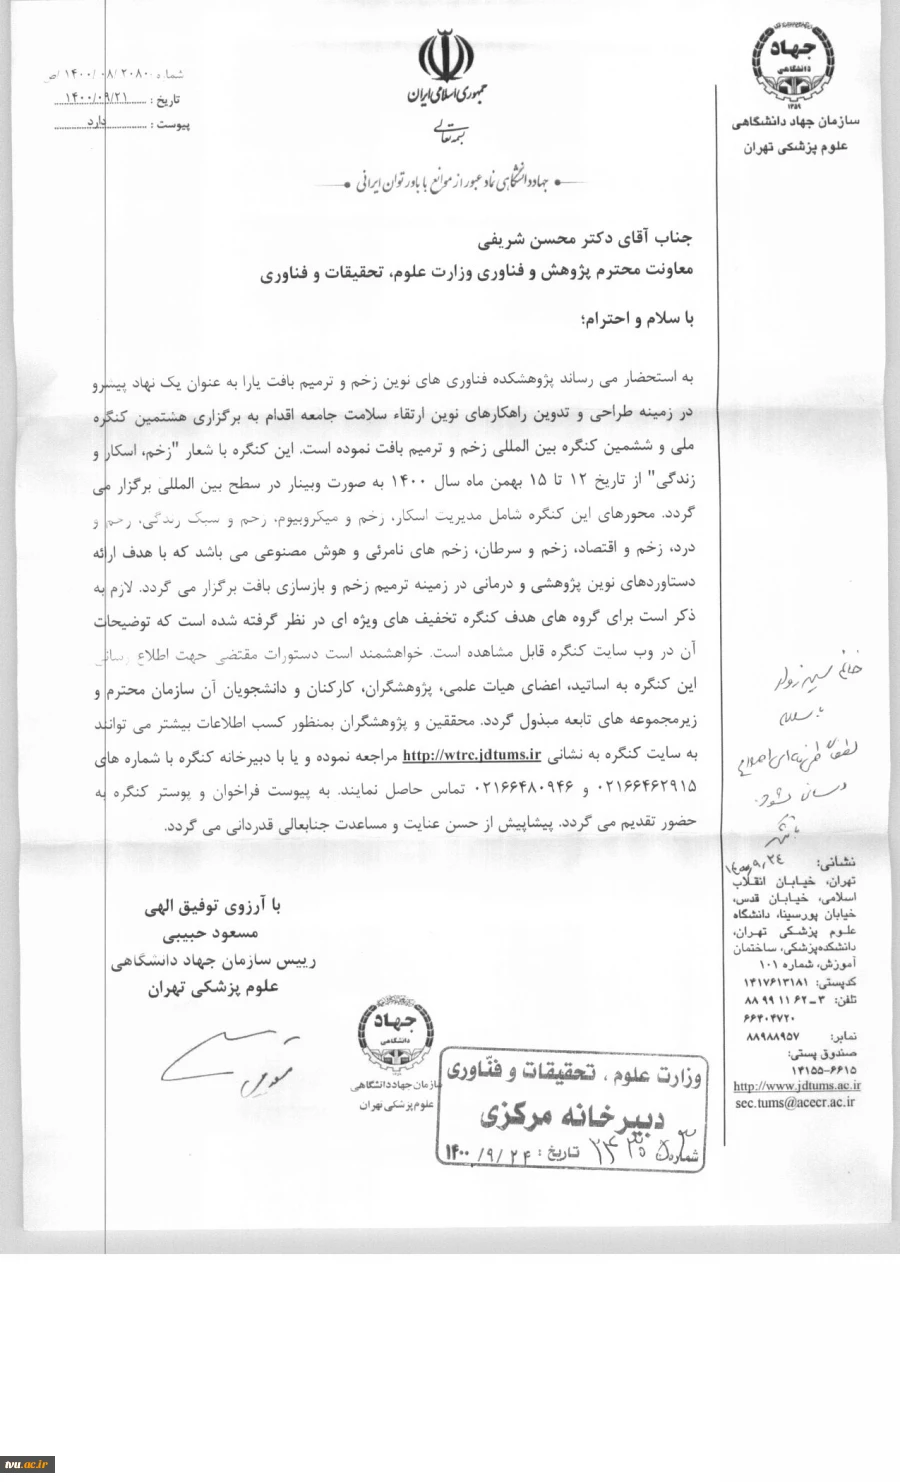 جهاد
دانشگاهی
۱۳۵۹
سازمان جهاد دانشگاهی
علوم پزشکی تهران
جمهوری اسلامی ایران
بسمه تعالی
جهاد دانشگاهی نماد عبور از موانع با باور توان ایرانی
شماره ۱۴۰۰/۰۸/۲۰۸۰/ص
تاریخ : ۱۴۰۰/۰۹/۲۱
پیوست : دارد
جناب آقای دکتر محسن شریفی
معاونت محترم پژوهش و فناوری وزارت علوم، تحقیقات و فناوری
با سلام و احترام؛
به استحضار می رساند پژوهشکده فناوری های نوین زخم و ترمیم بافت یارا به عنوان یک نهاد پیشرو
در زمینه طراحی و تدوین راهکارهای نوین ارتقاء سلامت جامعه اقدام به برگزاری هشتمین کنگره
ملی و ششمین کنگره بین المللی زخم و ترمیم بافت نموده است. این کنگره با شعار "زخم، اسکار و
زندگی" از تاریخ ۱۲ تا ۱۵ بهمن ماه سال ۱۴۰۰ به صورت وبینار در سطح بین المللی برگزار می
گردد. محورهای این کنگره شامل مدیریت اسکار، زخم و میکروبیوم، زخم و سبک زندگی، زخم و
درد، زخم و اقتصاد، زخم و سرطان، زخم های نامرئی و هوش مصنوعی می باشد که با هدف ارائه
دستاوردهای نوین پژوهشی و درمانی در زمینه ترمیم زخم و بازسازی بافت برگزار می گردد. لازم به
ذکر است برای گروه های هدف کنگره تخفیف های ویژه ای در نظر گرفته شده است که توضیحات
آن در وب سایت کنگره قابل مشاهده است. خواهشمند است دستورات مقتضی جهت اطلاع رسانی
این کنگره به اساتید، اعضای هیات علمی، پژوهشگران، کارکنان و دانشجویان آن سازمان محترم و
زیرمجموعه های تابعه مبذول گردد. محققین و پژوهشگران بمنظور کسب اطلاعات بیشتر می توانند
به سایت کنگره به نشانی http://wtrc.jdtums.ir مراجعه نموده و یا با دبیرخانه کنگره با شماره های
۰۲۱۶۶۴۶۲۹۱۵ و ۰۲۱۶۶۴۸۰۹۴۶ تماس حاصل نمایند. به پیوست فراخوان و پوستر کنگره به
حضور تقدیم می گردد. پیشاپیش از حسن عنایت و مساعدت جنابعالی قدردانی می گردد.
با آرزوی توفیق الهی
مسعود حبیبی
رییس سازمان جهاد دانشگاهی
علوم پزشکی تهران
جهاد
دانشگاهی
سازمان جهاد دانشگاهی
علوم پزشکی تهران
وزارت علوم ، تحقیقات و فنّاوری
دبیرخانه مرکزی
شماره:
تاریخ : ۱۴۰۰/۹/۲۴
خانم
با سلام
رسانی شود.
با تشکر
۱۴۰۰/۹/۲۴
نشانی:
تهران، خیابان انقلاب
اسلامی، خیابان قدس،
خیابان پورسینا، دانشگاه
علوم پزشکی تهران،
دانشکده‌پزشکی، ساختمان
آموزش، شماره ۱۰۱
کدپستی: ۱۴۱۷۶۱۳۱۸۱
تلفن: ۳-۶۲ ۱۱ ۹۹ ۸۸
۶۶۴۰۴۷۲۰
نمابر: ۸۸۹۸۸۹۵۷
صندوق پستی:
۱۴۱۵۵-۶۶۱۵
http://www.jdtums.ac.ir
sec.tums@acecr.ac.ir
tvu.ac.ir